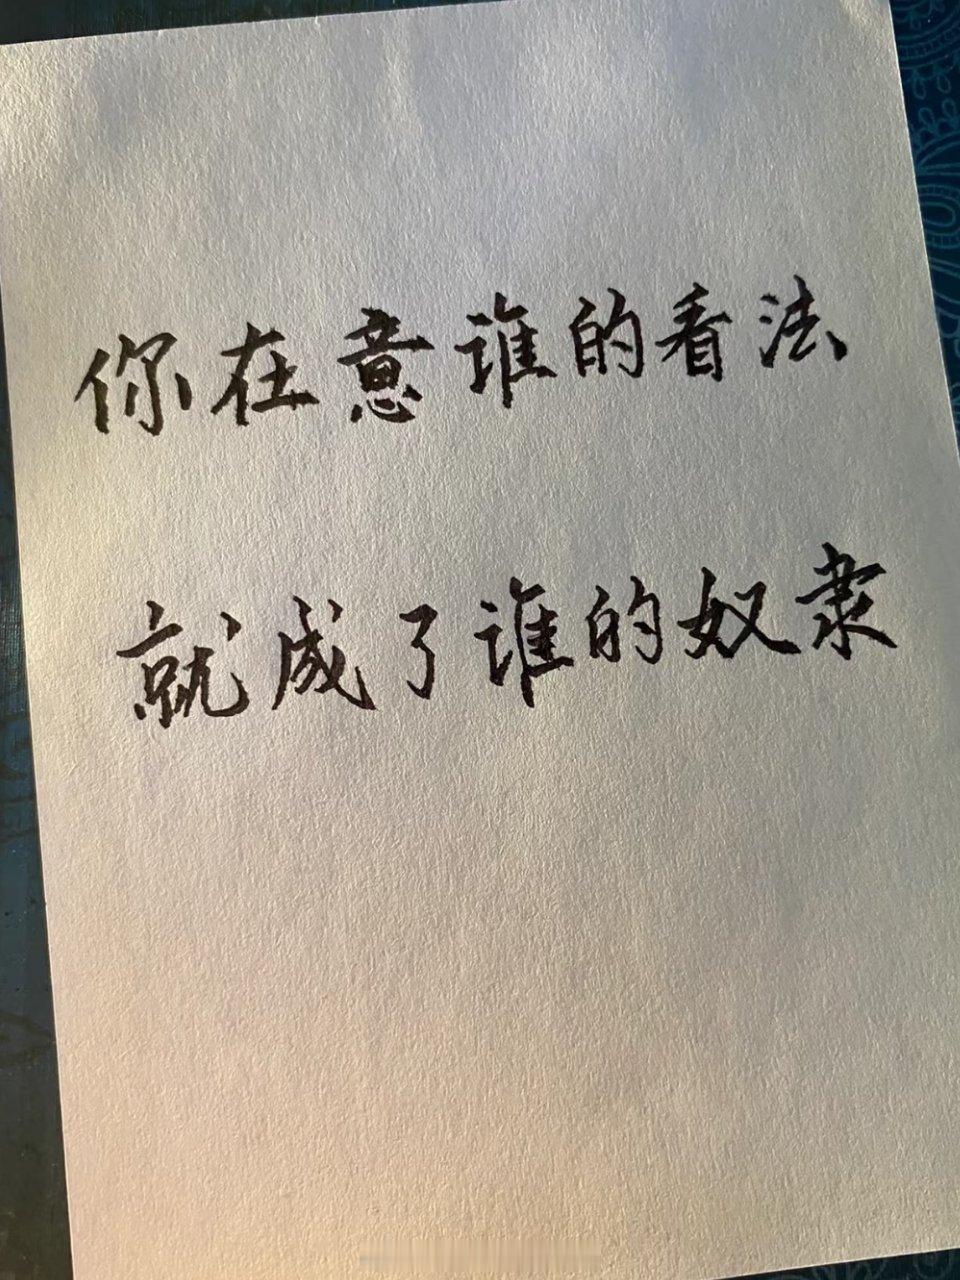 你在意谁的看法
就成了谁的奴隶